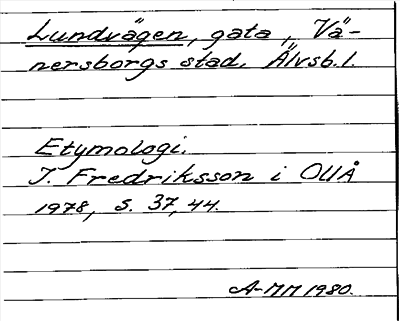 Lundvägen, gata, Vä-
nersborgs stad. Älvsb. l.
Etymologi.
I. Fredriksson i OUÅ
1978, s. 37, 44.
A-MM 1980.